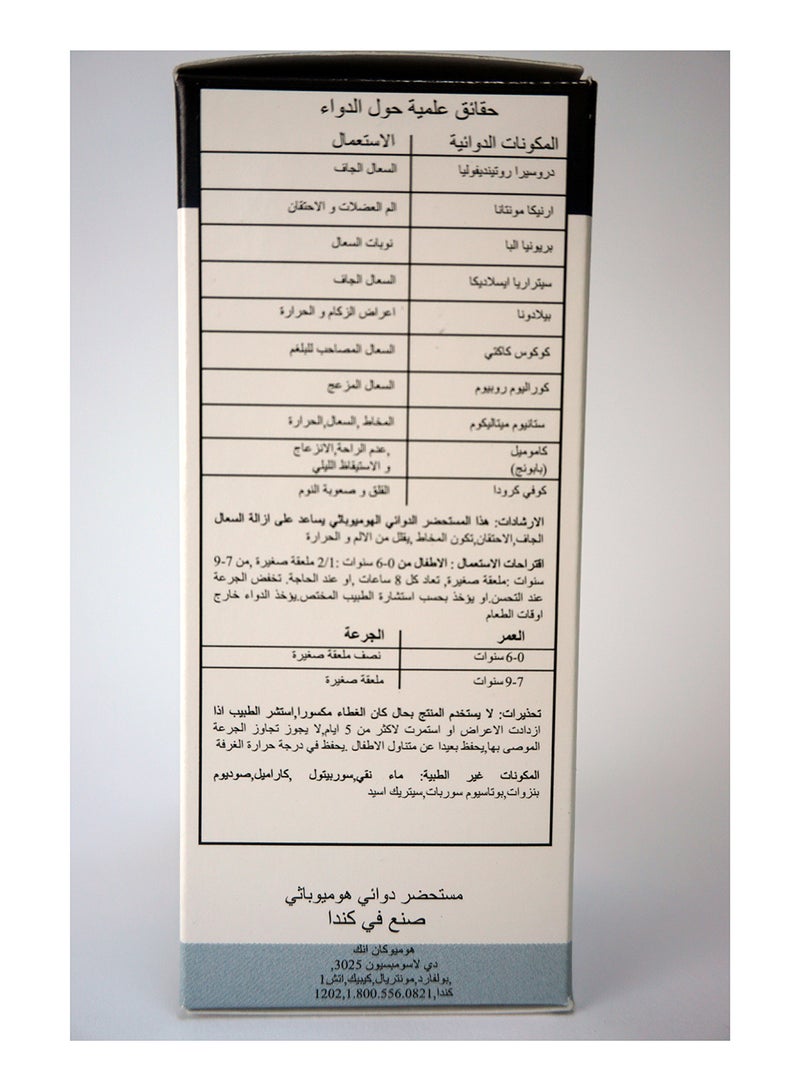 حقائق علمية حول الدواء
المكونات الدوائية الاستعمال
دروسيرا روتينديفوليا السعال الجاف
ارنيكا مونتانا الم العضلات و الاحتقان
بريونيا البا نوبات السعال
سيتراريا ايسلاديكا السعال الجاف
بيلادونا اعراض الزكام و الحرارة
كوكوس كاكتي السعال المصاحب للبلغم
كوراليوم روبيوم السعال المزعج
ستانيوم ميتاليكوم المخاط ,السعال,الحرارة
كاموميل ,عدم الراحة,الانزعاج
(بابونج) و الاستيقاظ الليلي
كوفي كرودا القلق و صعوبة النوم
الارشادات: هذا المستحضر الدوائي الهوميوباثي يساعد على ازالة السعال
الجاف,الاحتقان,تكون المخاط ,يقلل من الالم و الحرارة
اقتراحات الاستعمال : الاطفال من 0-6 سنوات :2/1 ملعقة صغيرة ,من 7-9
سنوات :ملعقة صغيرة, تعاد كل 8 ساعات ,او عند الحاجة. تخفض الجرعة
عند التحسن.او يؤخذ بحسب استشارة الطبيب المختص.يؤخذ الدواء خارج
اوقات الطعام
العمر الجرعة
6-0 سنوات نصف ملعقة صغيرة
9-7 سنوات ملعقة صغيرة
تحذيرات: لا يستخدم المنتج بحال كان الغطاء مكسورا,استشر الطبيب اذا
ازدادت الاعراض او استمرت لاكثر من 5 ايام,لا يجوز تجاوز الجرعة
الموصى بها,يحفظ بعيدا عن متناول الاطفال .يحفظ في درجة حرارة الغرفة
المكونات غير الطبية: ماء نقي,سوربيتول ,كاراميل,صوديوم
بنزوات,بوتاسيوم سوربات,سيتريك اسيد
مستحضر دوائي هوميوباثي
صنع في كندا
هوميوكان انك
دي لاسومبسيون 3025,
بولفارد,مونتريال,كيبيك,اتش1,
كندا,1202,1.800.556.0821